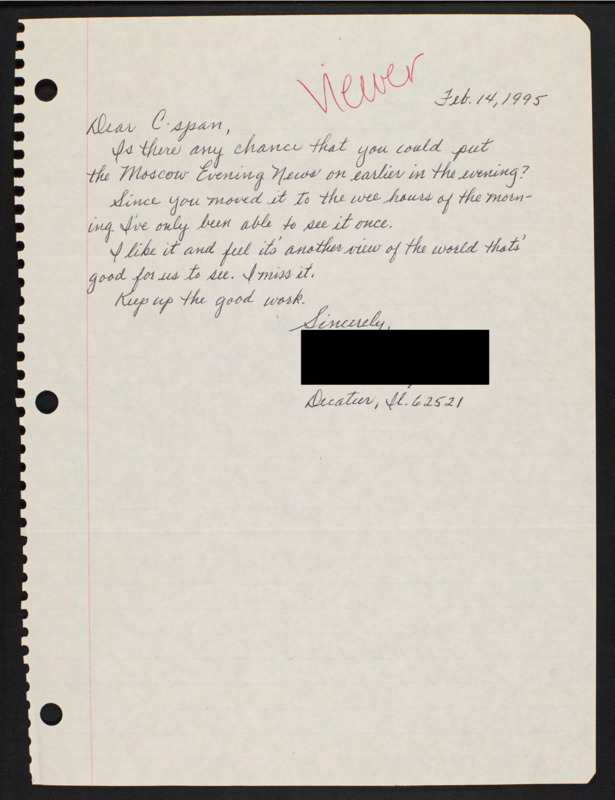 Viewer
Feb. 14, 1995
Dear C-span,
Is there any chance that you could put
the Moscow Evening News on earlier in the evening?
Since you moved it to the wee hours of the morn-
ing I've only been able to see it once.
I like it and feel its' another view of the world thats'
good for us to see. I miss it.
Keep up the good work.
Sincerely,
Decatur, Il. 62521